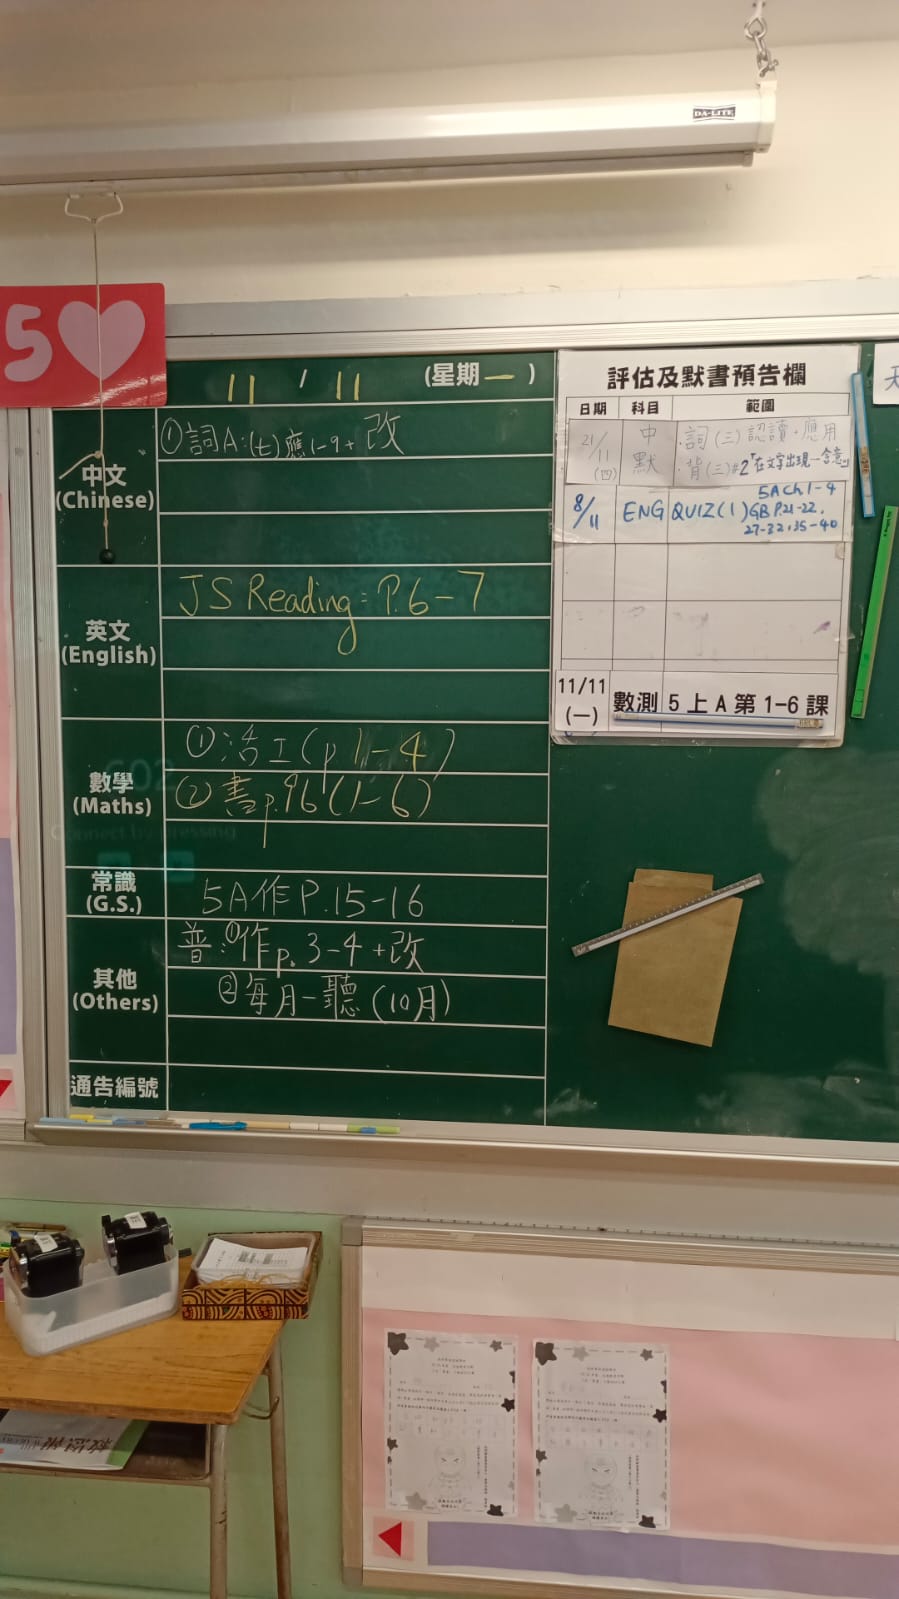 DA-LITE
5
11 / 11 (星期一)
中文
(Chinese)
①詞A:(七)應1-9+改
英文
(English)
JS Reading: P.6-7
數學
(Maths)
①活工(p1-4)
②書p.96(1-6)
常識
(G.S.)
5A作P.15-16
其他
(Others)
普:①作p.3-4+改
②每月一聽(10月)
通告編號
評估及默書預告欄
日期 科目 範圍
21/11 (四) 中默 .詞(三)認讀、應用
.背(三)#2「在文字出現一含意」
8/11 ENG QUIZ(1) 5A Ch1-4
GB P.21-22,
27-32,35-40
11/11 (一) 數測 5上A第1-6課
天